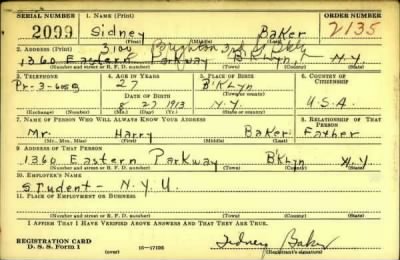 SERIAL NUMBER 1. NAME (Print) ORDER NUMBER
2099 Sidney Baker 2135
(First) (Middle) (Last)
2. ADDRESS (Print) 3100 Brighton 3rd St Bklyn
1360 Eastern Parkway B'KLyn, N.Y.
(Number and street or R. F. D. number) (Town) (County) (State)
3. TELEPHONE 4. AGE IN YEARS 5. PLACE OF BIRTH 6. COUNTRY OF CITIZENSHIP
Pr-3- 27 B'KLyn
DATE OF BIRTH (Town or county)
8 27 1913 N.Y. U.S.A.
(Exchange) (Number) (Mo.) (Day) (Yr.) (State or country)
7. NAME OF PERSON WHO WILL ALWAYS KNOW YOUR ADDRESS 8. RELATIONSHIP OF THAT PERSON
Mr. Harry Baker Father
(Mr., Mrs., Miss) (First) (Middle) (Last)
9. ADDRESS OF THAT PERSON
1360 Eastern Parkway B'KLyn N.Y.
(Number and street or R. F. D. number) (Town) (County) (State)
10. EMPLOYER'S NAME
Student - N.Y.U.
11. PLACE OF EMPLOYMENT OR BUSINESS
(Number and street or R. F. D. number) (Town) (County) (State)
I AFFIRM THAT I HAVE VERIFIED ABOVE ANSWERS AND THAT THEY ARE TRUE.
REGISTRATION CARD
D. S. S. Form 1 16-17105 Sidney Baker
(Registrant's signature)